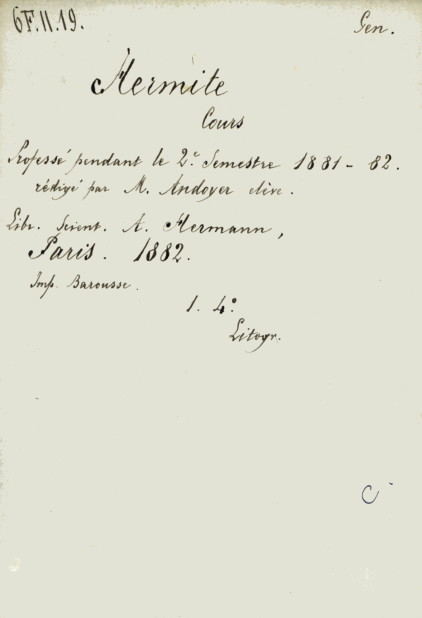 6F.II.19.
Gen.
Hermite
Cours
Professé pendant le 2.e Semestre 1881-82.
rédigé par M. Andoyer elève.
Libr. Scient. A. Hermann,
Paris. 1882.
Imp. Barousse.
1. 4.o
Litogr.
C